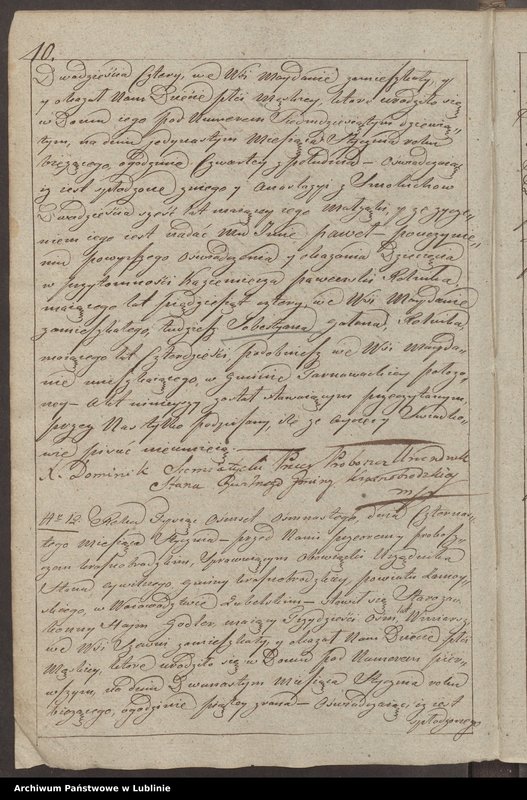 10.
Dwadzieścia Cztery, we Wsi Maydanie zamieszkały, y
y okazał Nam Dziecię płci Męskiey, które urodziło się
w Domu iego pod Numerem Siedmdziesiątym dziewią-
tym, na dniu Jedynastym Miesiąca Stycznia roku
bieżącego, o godzinie Czwartey z południa — oświadczaiąc
iż iest spłodzone z niego y Anastazyi z Smoluchow
Dwadzieścia sześć lat maiącey iego Małżonki, y że życze-
niem iego iest nadać Mu Imie Paweł — po uczynie-
niu powyższego oświadczenia y okazania Dziecięcia
w przytomności Kazimierza Rolnika
maiącego lat Pięćdziesiąt cztery, we Wsi Maydanie
zamieszkałego, tudzież Sobestyana Gałana, Rolnika,
maiącego lat Czterdzieści, podobnież we Wsi Mayda-
nie mieszkaiącego, w Gminie Tarnawackiey położo-
ney — Akt ninieyszy został stawaiącym przeczytanym,
przez Nas tylko podpisany, ile że Oyciec y Świadko-
wie pisać nieumieią. —
X. Dominik Siemiątycki Proboszcz Urzendnik
Stanu Cywilnego Gminy Krasnobrodzkiey
mp
Nr 12. Roku Tysiąc Osmset Osmnastego, dnia Czternas-
tego Miesiąca Stycznia — przed Nami przezornym Probosz-
czem Krasnobrodzkim, sprawuiącym Obowiązki Urzędnika
Stanu Cywilnego Gminy Krasnobrodzkiey, powiatu Zamoy-
skiego, w Woiewództwie Lubelskim — stawił się Starozak-
onny Haim Godler, maiący Trzydzieści Osm lat,
we Wsi zamieszkały, y okazał Nam Dziecie płci
Męskiey, które urodziło się w Domu pod Numerem pier-
wszym, na dniu Dwunastym Miesiąca Stycznia roku
bieżącego, o godzinie piątey z rana — oświadczaiąc iż iest
spłodzonym
Archiwum Państwowe w Lublinie